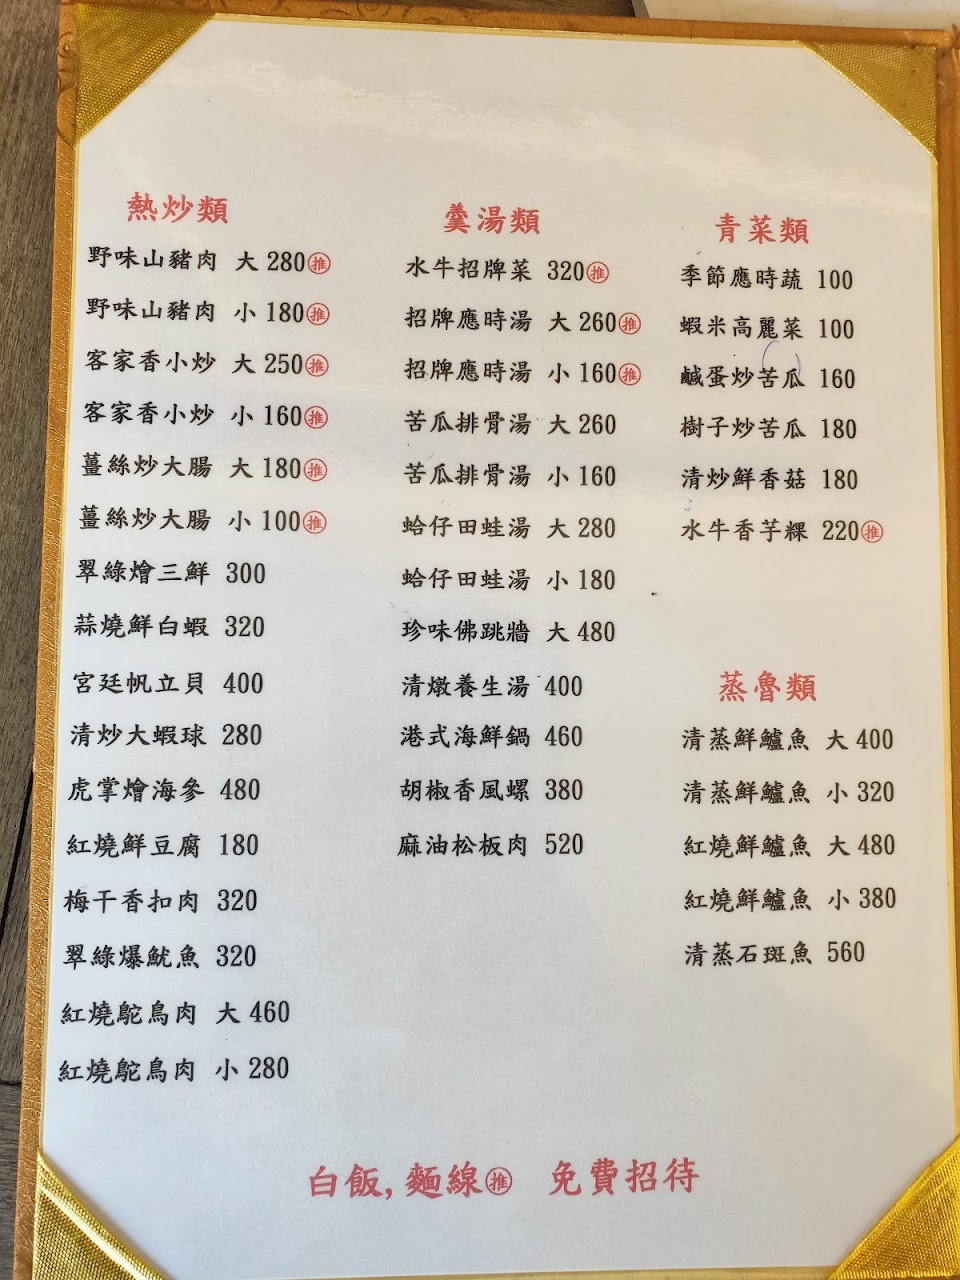 熱炒類
野味山豬肉 大 280㊣推
野味山豬肉 小 180推
客家香小炒 大 250推
客家香小炒 小 160推
薑絲炒大腸 大 180推
薑絲炒大腸 小 100推
翠綠燴三鮮 300
蒜燒鮮白蝦 320
宮廷帆立貝 400
清炒大蝦球 280
虎掌燴海參 480
紅燒鮮豆腐 180
梅干香扣肉 320
翠綠爆魷魚 320
紅燒鴕鳥肉 大 460
紅燒鴕鳥肉 小 280
羹湯類
水牛招牌菜 320推
招牌應時湯 大 260推
招牌應時湯 小 160推
苦瓜排骨湯 大 260
苦瓜排骨湯 小 160
蛤仔田蛙湯 大 280
蛤仔田蛙湯 小 180
珍味佛跳牆 大 480
清燉養生湯 400
港式海鮮鍋 460
胡椒香風螺 380
麻油松板肉 520
青菜類
季節應時蔬 100
蝦米高麗菜 100
鹹蛋炒苦瓜 160
樹子炒苦瓜 180
清炒鮮香菇 180
水牛香芋粿 220推
蒸魯類
清蒸鮮鱸魚 大 400
清蒸鮮鱸魚 小 320
紅燒鮮鱸魚 大 480
紅燒鮮鱸魚 小 380
清蒸石斑魚 560
白飯,麵線推 免費招待